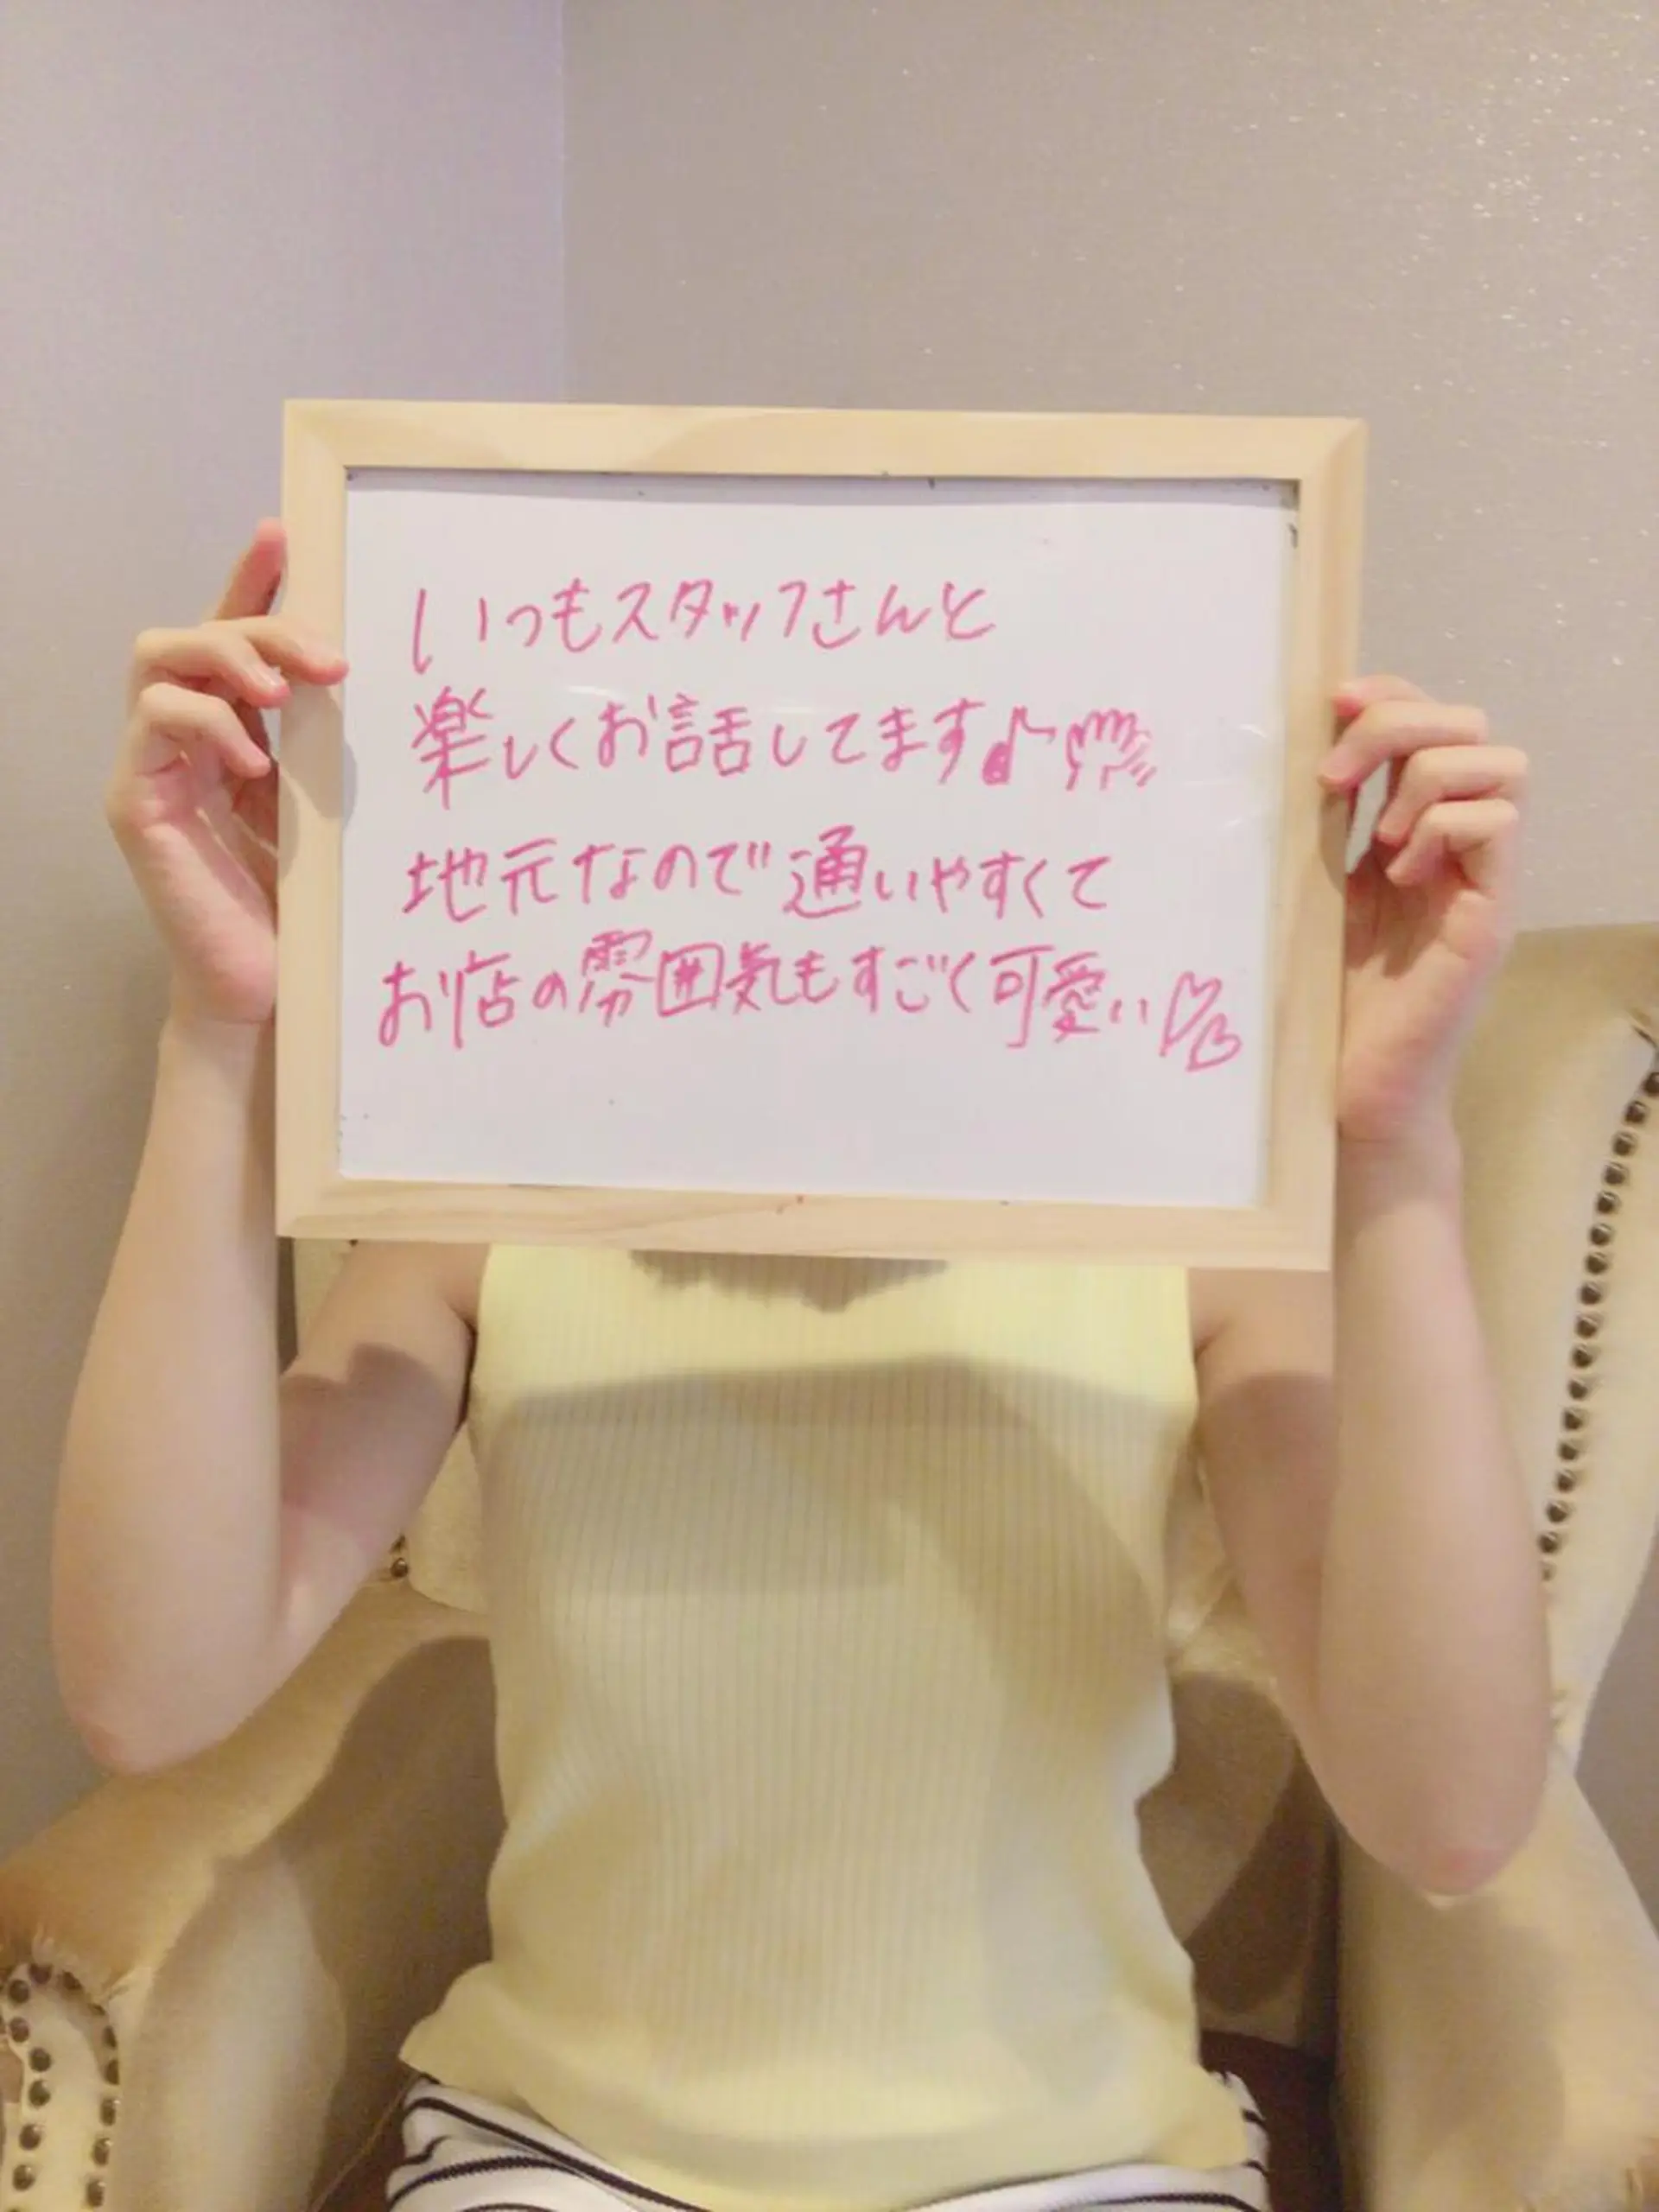 いつもスタッフさんと
楽しくお話してます♪
地元なので通いやすくて
お店の雰囲気もすごく可愛い♡♡